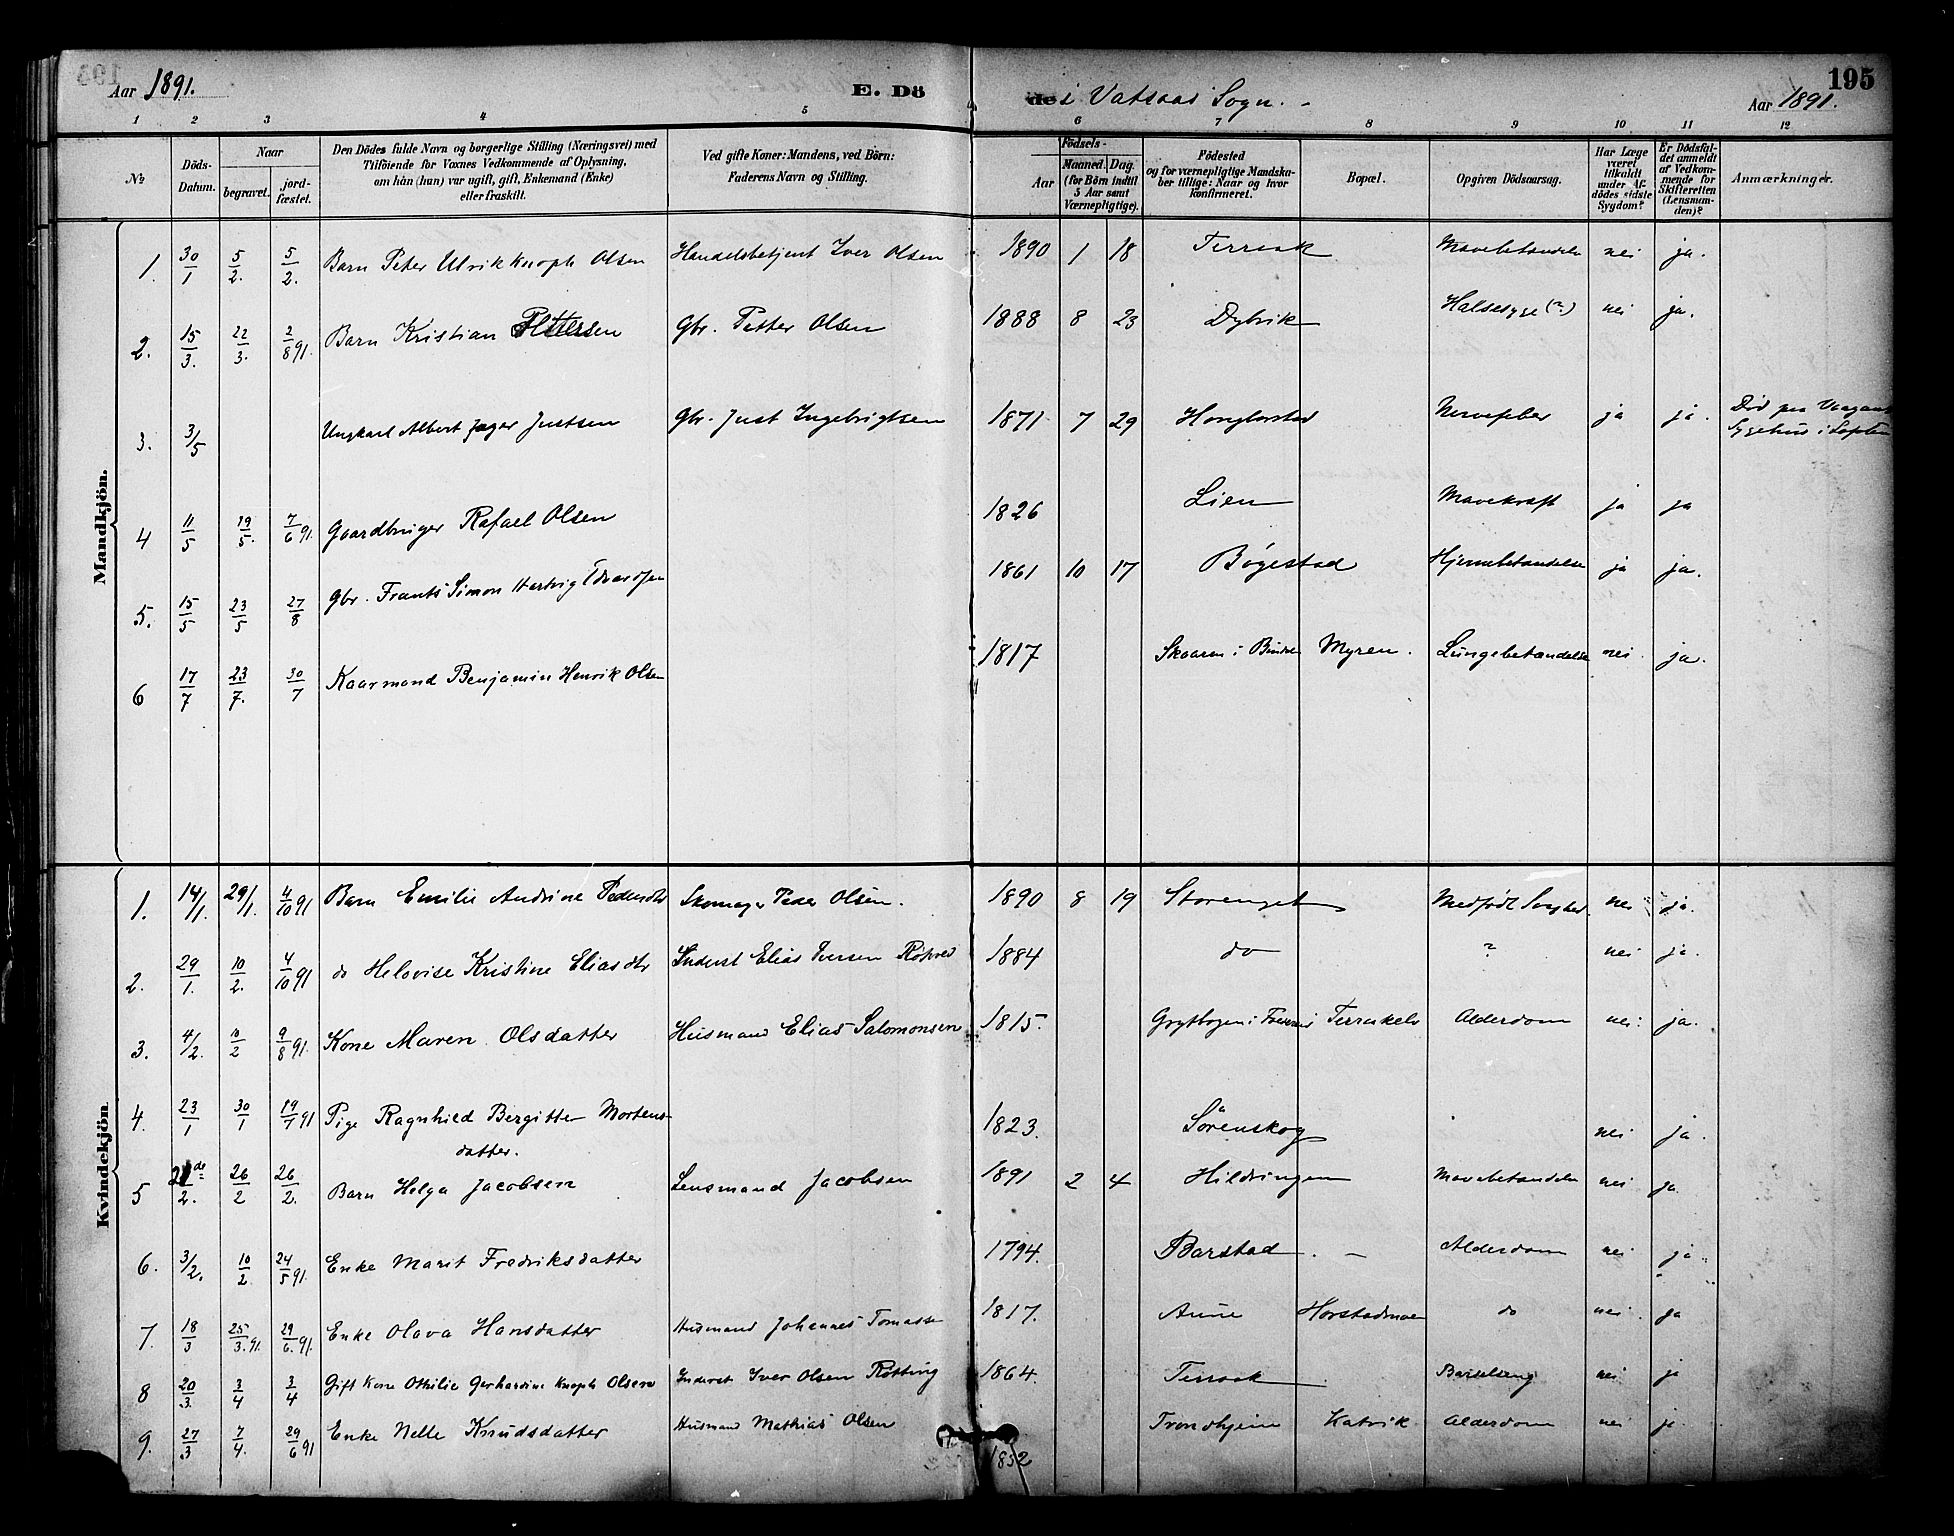 195
Aar 1891. E. Dö de i Vatsaas Sogn. Aar 1891.
1 2 3 4 5 6 7 8 9 10 11 12
No
Döds-Datum.
Naar
begravet. jord-fæstet.
Den Dödes fulde Navn og borgerlige Stilling (Næringsvei) med
Tilföiende for Voxnes Vedkommende af Oplysning,
om hån (hun) var ugift, gift, Enkemand (Enke)
eller fraskilt.
Ved gifte Koner: Mandens, ved Börn:
Faderens Navn og Stilling.
Födsels-
Aar Maaned. Dag.
(for Börn indtil
5 Aar samt
Værnepligtige).
Födested
og for værnepligtige Mandska-
ber tillige: Naar og hvor
konfirmeret.
Bopæl.
Opgiven Dödsaarsag.
Har Læge
været
tilkaldt
under Af-
dödes sidste
Sygdom?
Er Dödsfal-
det anmeldt
af Vedkom-
mende for
Skifteretten
(Lensman-
den)?
Anmærkninger.
Mandkjön.
1. 30/1 5/2. 5/2. Barn Peter Ulrik Knoph Olsen Handelsbetjent Iver Olsen 1890 1 18 Terraak Mavebetændelse nei ja.
2. 15/3. 22/3. 2/8 91. Barn Kristian Pettersen Gbr. Petter Olsen 1888 8 23 Dybvik Halsesyge (?) nei ja.
3. 3/5 Ungkarl Albert Jager Justsen Gbr. Just Ingebrigtsen 1871 7 29 Nervefeber ja ja. Död paa
Sygehus i
4 11/5 19/5. 7/6 91. Gaardbruger Rafael Olsen 1826 Lien Mavekræft ja ja
5. 15/5 23/5 27/8 Gbr. Frants Simon Hartvig 1861 10 17 Bøgestad Hjernebetændelse ja ja.
6 17/7 23/7. 30/7 Kaarmand Benjamin Henrik Olsen 1817 Skaaren i Myren. Lungebetændelse nei. ja.
Kvindekjön
1. 14/1. 29/1. 4/10 91 Barn Emilie Andrine Pedersdtr Skomager Peder Olsen. 1890 8 19 Storenget Medfödt Svaghed nei ja.
2. 29/1. 10/2. 4/10 91 do Helovise Kristine Eliasdtr Inderst Elias Iversen 1884 do ? nei ja.
3. 4/2. 10/2 9/8 91. Kone Maren Olsdatter Husmand Elias Salomonsen 1815. Alderdom nei. ja.
4. 23/1 30/1 19/7 91 Pige Ragnhild Bergitte Mortens-
datter. 1823. Sörenskog nei ja.
5 21de/2. 26/2 26/2. Barn Helga Jacobsen Lensmand Jacobsen 1891 2 4 Hildringen Mavebetændelse nei ja
6. 3/2. 10/2 24/5 91. Enke Marit Fredriksdatter 1794. Barstad. - Alderdom nei ja
7. 18/3 25/3. 91. 29/6. 91. Enke Olava Hansdatter Husmand Johannes Tomassen 1817. Aune Horstadmoen do nei. ja
8 20/3. 3/4 3/4 Gift Kone Othilie Gerhardine Knoph Olsen Inderst Iver Olsen Røtting 1864. Terraak Barselseng nei ja
9. 27/3 7/4. 29/6 91 Enke Nelle Knudsdatter Husmand Mathias Olsen 1832 Trondhjem Kalvik Alderdom nei ja.